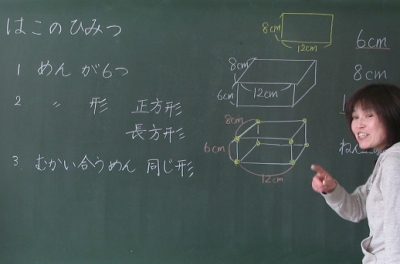 はこのひみつ
1 めん が6つ
2 〃 形 正方形
長方形
3. むかい合うめん 同じ形
8cm
12cm
8cm
12cm
6cm
8cm
6cm
12cm
6cm
8cm
1
ねん